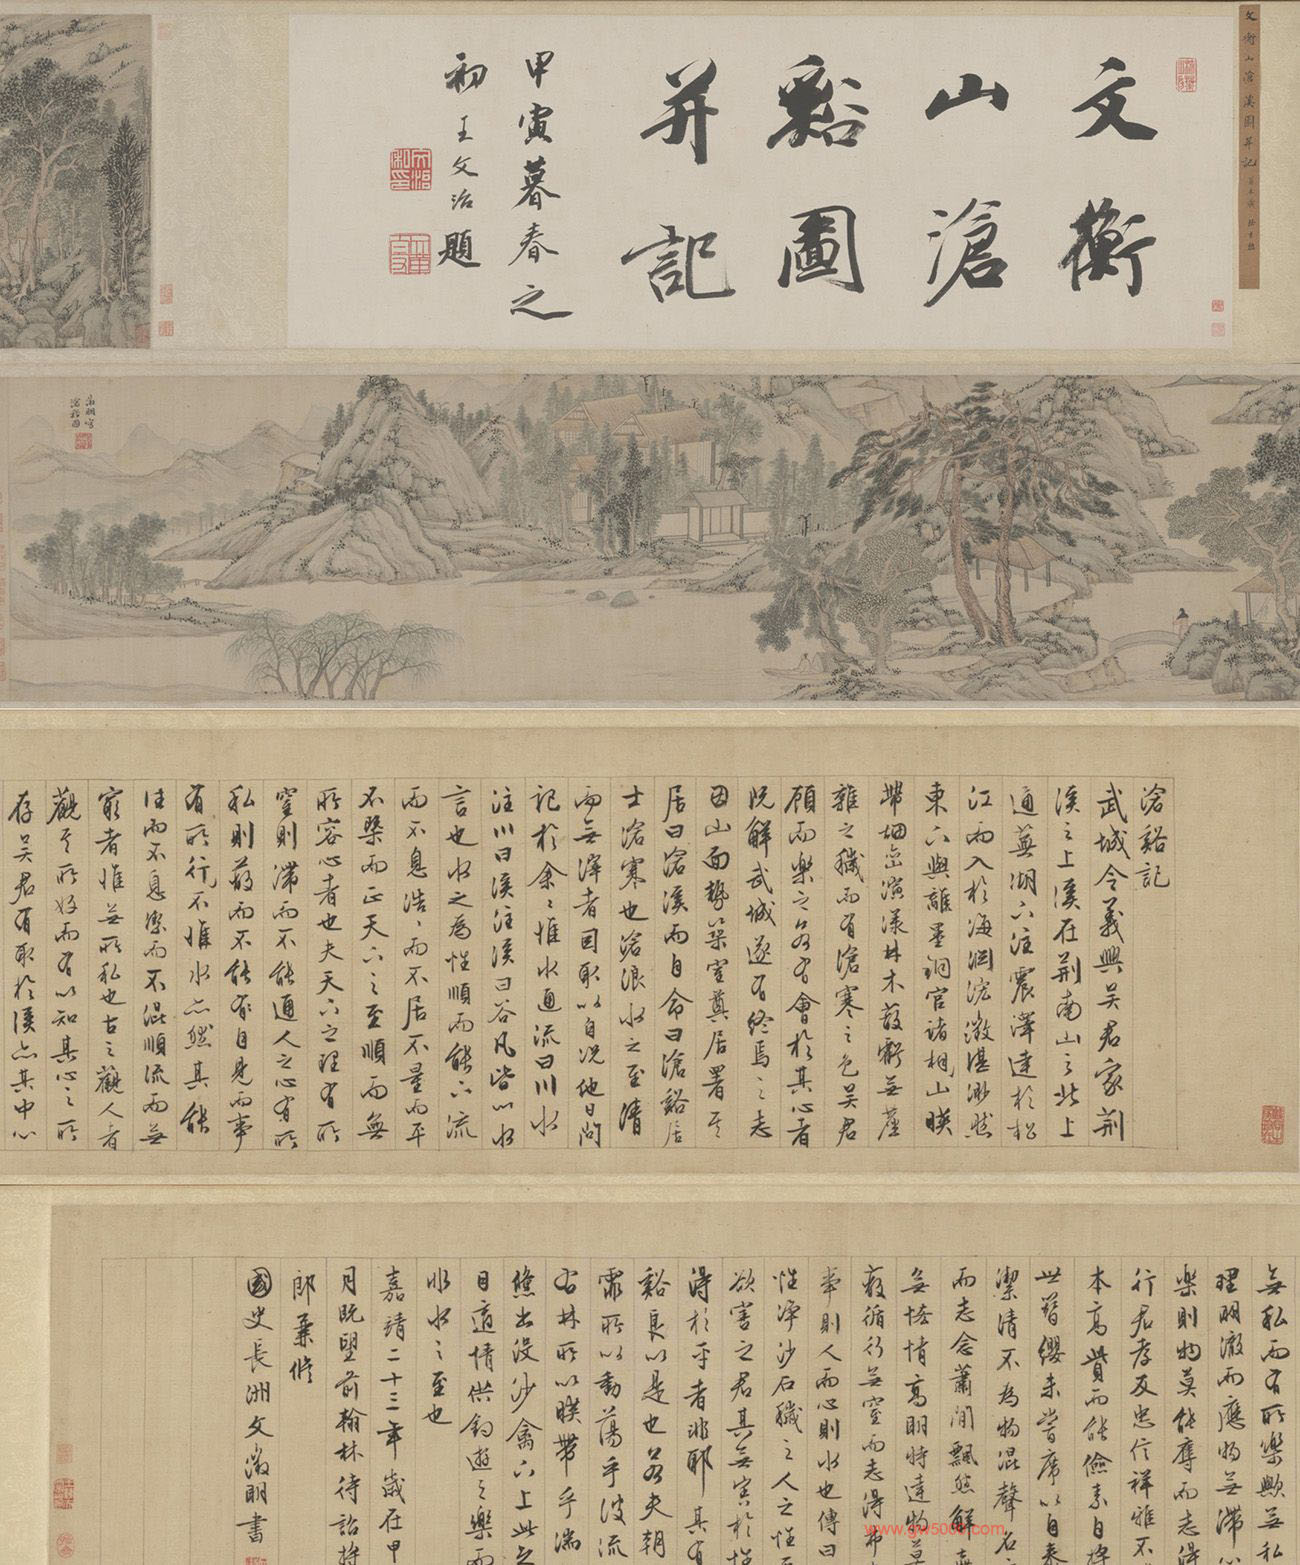 文衡山滄溪圖并記
文衡
山滄
谿圖
并記
甲寅暮春之
初王文治題
徵明寫
滄谿圖
滄谿記
武城令義興吳君家荆
溪之上溪在荆南山之北上
通蕪湖下注震澤達於松
江而入於海淵渟澂湛渺然
東下與離墨銅官諸桐山暎
帶烟巒演漾林木蔽虧無塵
雜之穢而有滄寒之色吳君
顧而樂之若有會於其心者
既解武城遂有終焉之志
因山面勢築室奠居署其
居曰滄溪而自命曰滄谿居
士滄寒也滄浪水之至清
而無滓者因取以自况他日問
記於余余惟水通流曰川水
注川曰溪注溪曰谷凡皆以水
言也水之為性順而能下流
而不息浩浩而不居不量而平
不㮣而正天下之至順而無
所容心者也夫天下之理有所
窒則滯而不能通人之心有所
私則蔽而不能有自見而事
有所行不惟水亦然其能
往而不息潔而不混順流而無
窮者惟無所私也古之觀人者
觀其所好而有以知其心之所
存吳君有取於溪亦其中心
無私而有所樂歟無私
理明澈而應物無滯
樂則物莫能奪而志得
行君孝友忠信祥雅不
本高貲而能儉素自持
世簪纓未嘗席以自泰
潔清不為物混聲名
而志念蕭閒飄然解
無恡情高明特達物莫
蔽循行無窒而志得
率則人而心則水也傳曰
性淨沙石穢之人之性
欲害之君其無害於性
得於平者非耶其有
谿良以是也若夫朝
霏所以動蕩乎波流
石林所以暎帶乎湍
儵出沒沙禽下上此
目適情供釣遊之樂而
水水之至也
嘉靖二十三年歲在甲
月既望前翰林待詔將
郎兼脩
國史長洲文徵明書